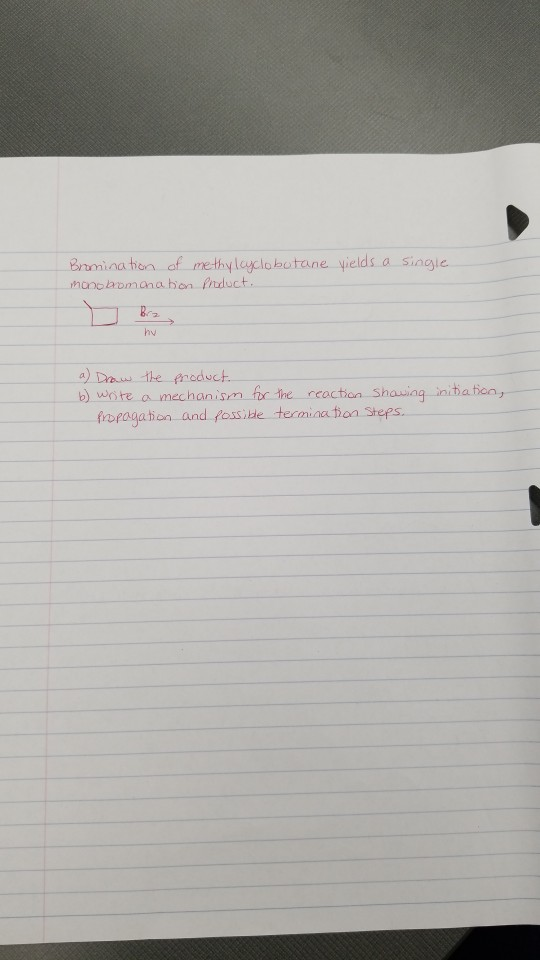 Bromination of methylcyclobutane yields a single
monobromonation Product.
Br2
hν
a) Draw the product.
b) Write a mechanism for the reaction showing initiation,
Propagation and Possible termination Steps.